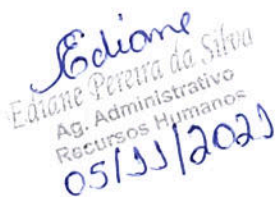 Ediane
Ediane Pereira da Silva
Ag. Administrativo
Recursos Humanos
05/11/2021